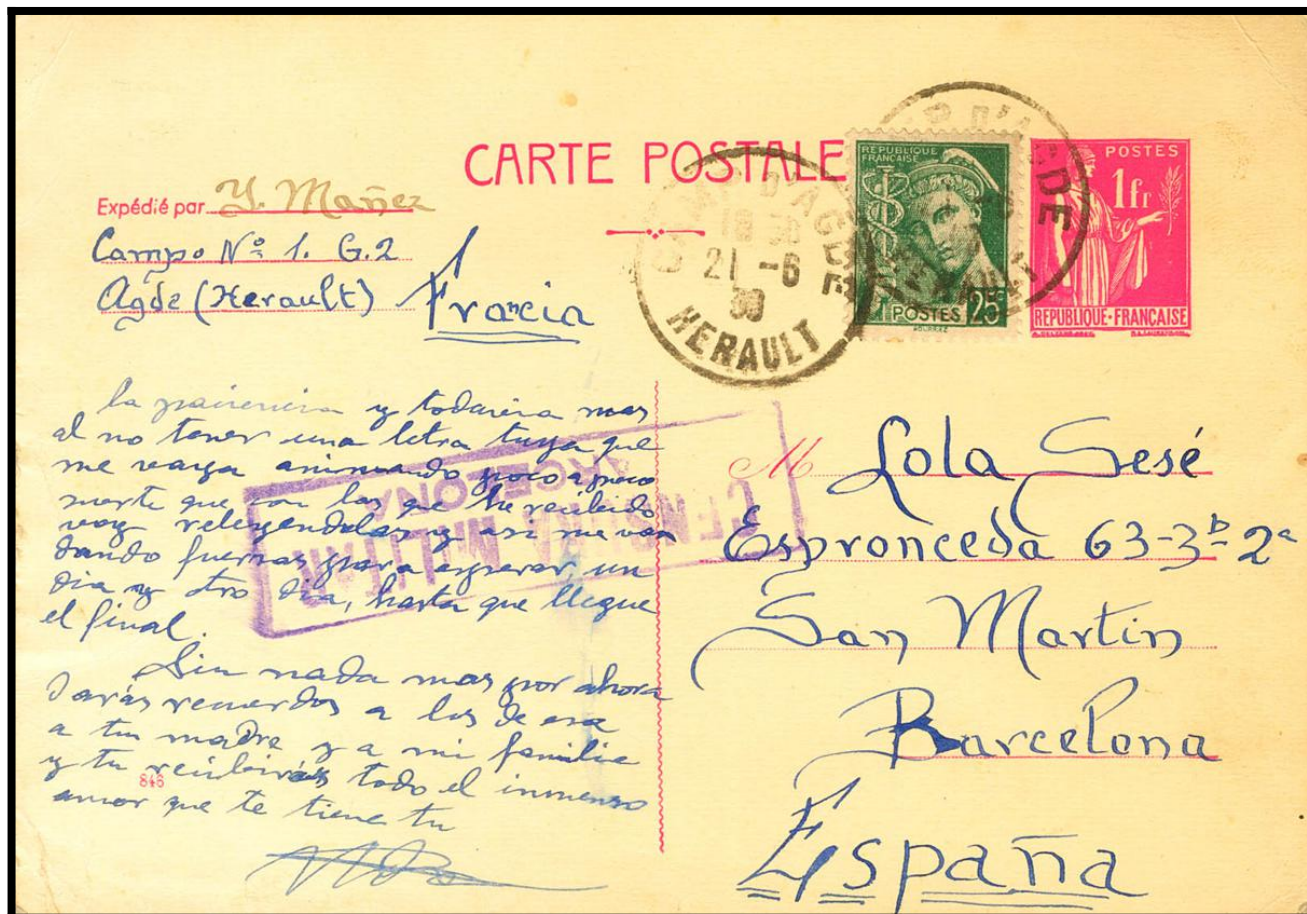 CARTE POSTALE
Expédié par Y. Mañez
Campo Nº 1. G.2
Agde (Herault) Francia
CAMP D'AGDE
21 -6
39
HERAULT
CAMP D'AGDE
HERAULT
REPUBLIQUE
FRANÇAISE
POSTES 25
POSTES
1fr
REPUBLIQUE-FRANÇAISE
CENSURA MILITAR
BARCELONA
la paciencia y todavia mas
al no tener una letra tuya que
me vaya animando poco a poco
merte que con las que he recibido
voy releyendolas y asi me van
dando fuerzas para esperar, un
dia y otro dia, hasta que llegue
el final.
Sin nada mas por ahora
Darás recuerdos a los de esa
a tu madre y a mi familia
y tu recibirás todo el inmenso
amor que te tiene tu
846
M Lola Sesé
Espronceda 63-3º-2ª
San Martin
Barcelona
España